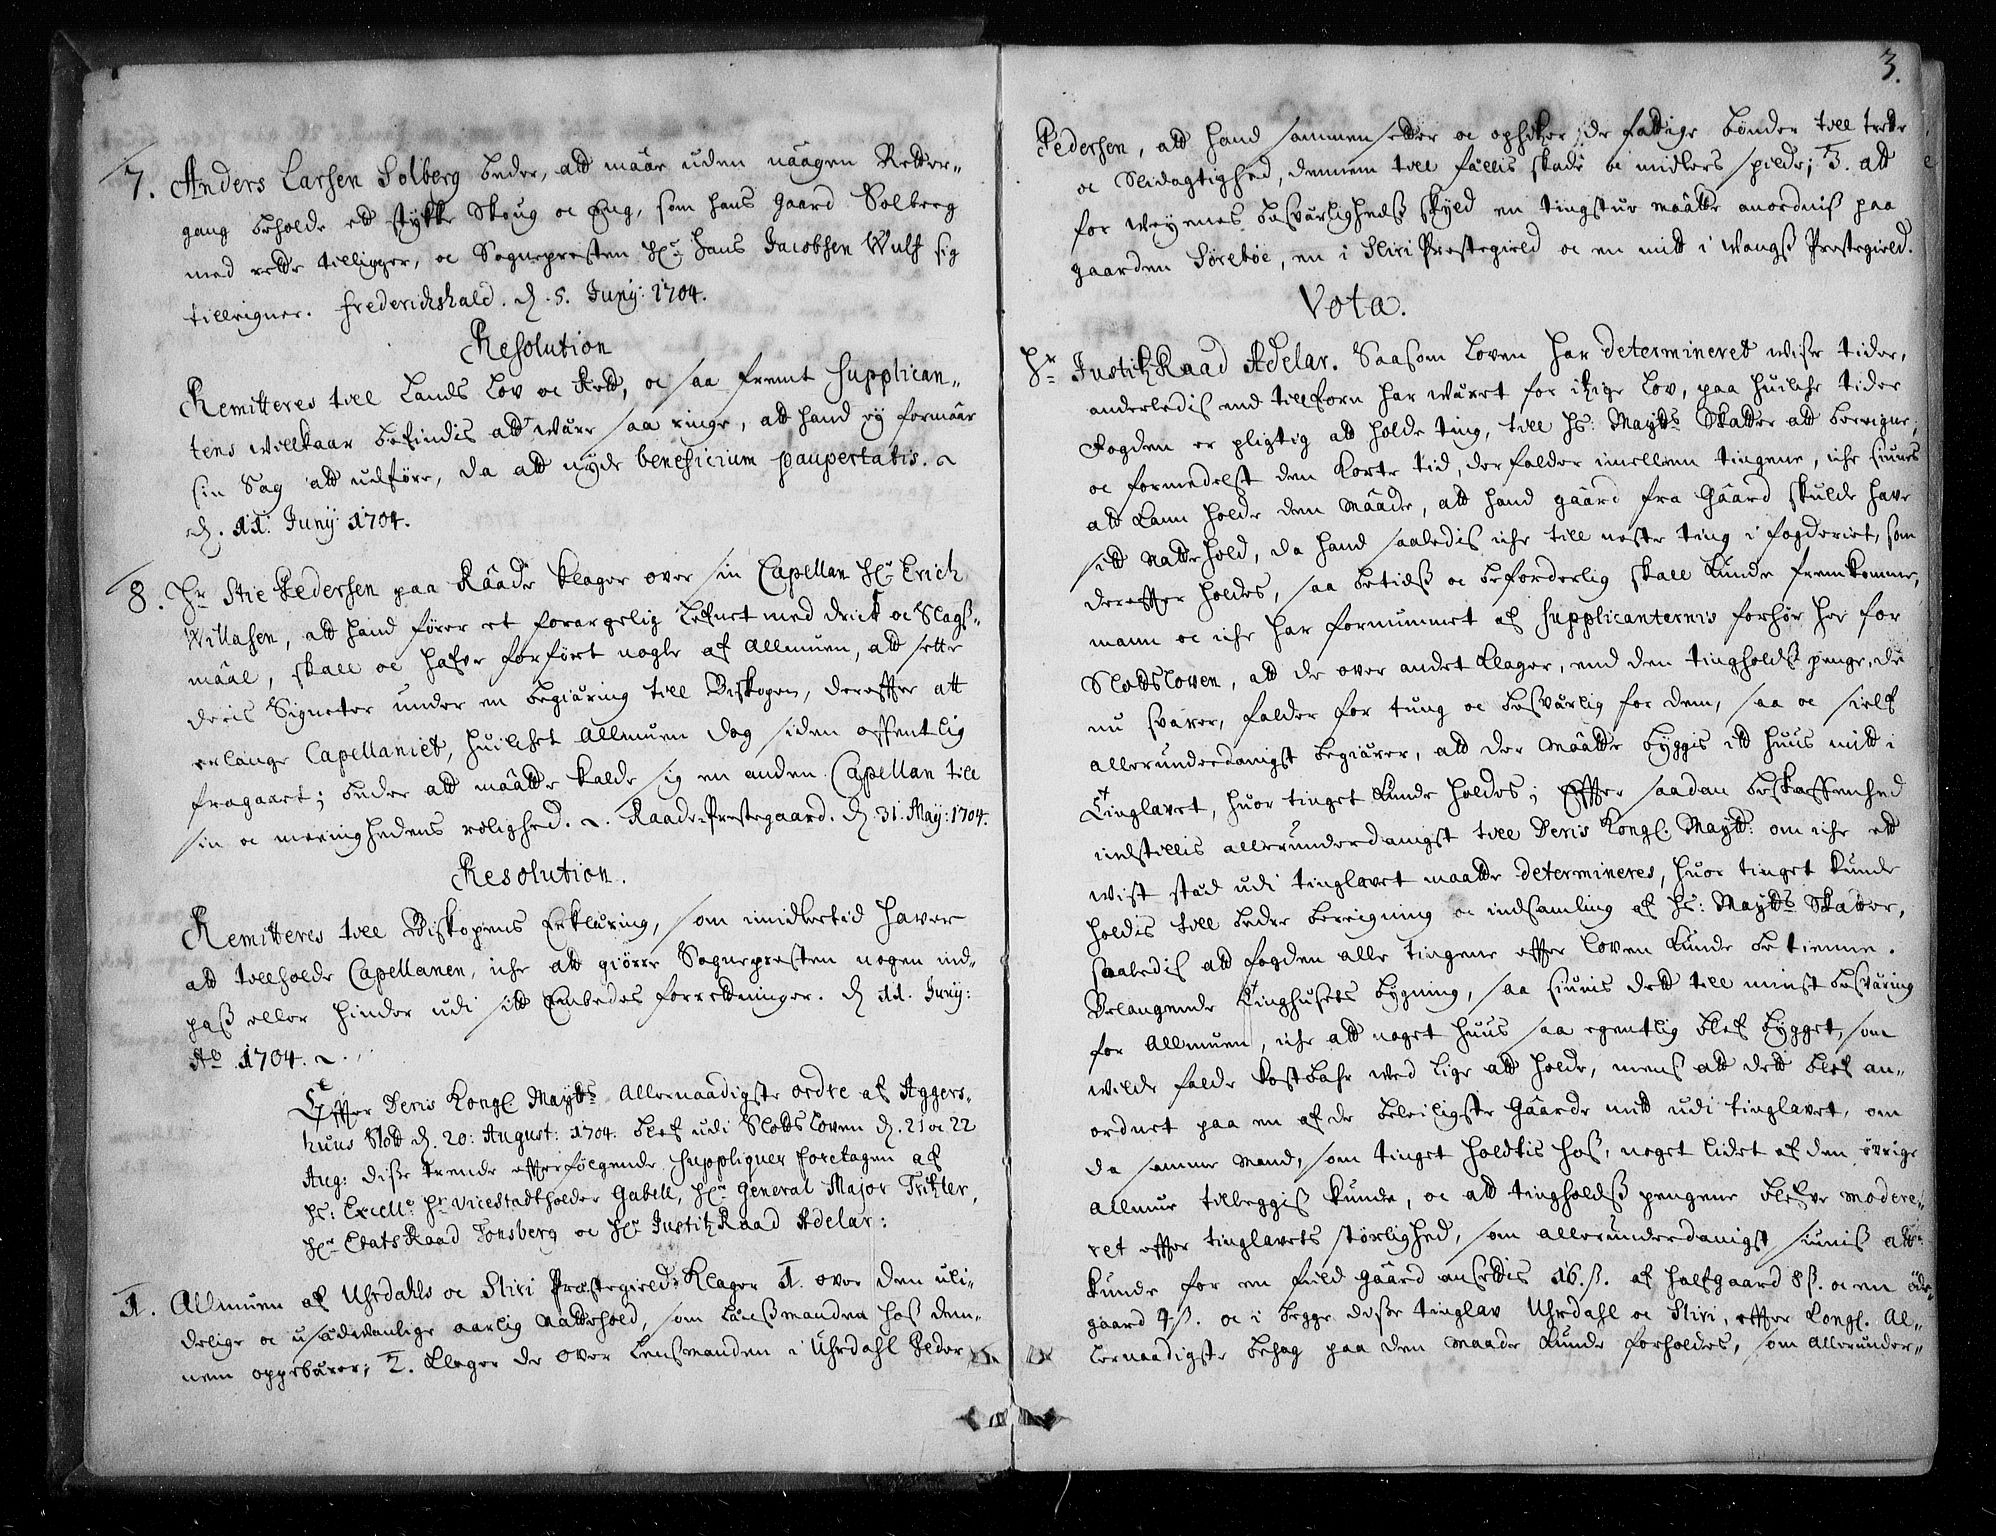 7. Anders Larsen Solberg beder, att maae uden naagen Retter-
gang beholde ett stykke Skoug oc Eng, som hans gaard Solberg
med rette tilligger, oc Sognepresten Hr. Hans Jacobsen Wulf sig
tillegner. Frederichshald. d. 5. Juny: 1704.
Resolution
Remitteres till Lands Lov oc Rett, oc saa fremt Supplican-
tens willkaar befindis att were saa ringe, att hand ej formaar
sin Sag att udføre, da att nyde beneficium paupertatis.
d. 11. Juny 1704.
8. Hr. Stie Pedersen paa Raade klager over sin Capellan Hr. Erich
Willasen, att hand fører et forargelig Lefnet med drick oc Slags-
maal, skall oc hafve forført nogle af Allmuen, att sette
deris Signeter under en begiæring till Biskopen, dereffter att
erlange Capellaniet, huilchet Allmuen dog siden offentlig
fragaaet; beder att maatte kalde sig en anden Capellan till
sin oc meenighedens rolighed. Raade Prestegaard. d. 31. May: 1704.
Resolution.
Remitteres till Biskopens Erklæring, som imidlertid haver
att tilholde Capellanen, iche att giørre Sognepresten nogen ind-
pass eller hinder udi sitt Embedes forrettninger. d. 11. Juny:
Ao 1704.
Effter Deris Kongl Maytts Allernaadigste ordre af Aggers-
huus Slott d. 20: August: 1704. blef udi Slottsloven d. 21 oc 22
Aug: disse trende efferfølgende Suppliquer foretagen af
Hs: Excell. Hr Vicestadtholder Gabell, Hr. General Major Tritzler,
Hr. Etats Raad Tonsberg oc Hr. Justitz Raad Adelar:
1. Allmuen af Uhrdahls oc Sliri Prestegield: Klager 1. over den uli-
delige oc usædvanlige aarlig Nattehold, som Lænssmanden hos dem-
nem oppebærer; 2. Klager de over Lensmanden i Uhrdahl Peder
3.
Pedersen, att hand sammensetter oc ophidser de fattige bønder till trette
oc Slidagtighed, dennem till fællis skade oc midlers spilde; 3. att
for Weyenes besværligheds skyld en tingstue maatte anordnis paa
gaarden Sørebøe, en i Sliri Prestegield oc en mitt i Wangss Prestegield.
Vota.
Hr Justitz Raad Adelar. Saasom Loven har determineret wisse tider,
anderledis end tillforn har wæret for itzige Lov, paa huilche tider
Fogden er pligtig att holde ting, till Hs: Maytts Skatter att beregne,
oc formedelst den korte tid, der falder imellem tingene, iche siunes
att kunn holde den Maade, att hand gaard fra Gaard skulde have
sitt Nattehold, da hand saaledis iche till neste ting i fogderiet, som
dereffter holdes, saa betids oc beforderlig skall kunde fremkomme,
mann oc iche har fornummet af Supplicanternis forhør her for
Slottsloven, att de over andet klager, end den tingholds penge, de
nu svarer, falder for tung oc besværlig for dem, saa oc sielf
allerunderdanigst begiærer, att der maatte byggis ett huus mitt i
Tinglavet, huor tinget kunde holdes; Effter saadan beskaffenhed
indstillis allerunderdanigst till Deris Kongl. Maytt: om iche ett
wist sted udi tinglavet maatte determineres, huor tinget kunde
holdis till bedre beregning oc indsamling af Hs: Maytts Skatter,
saaledis att fogden alle tingene effter Loven kunde betienne.
Belangende Tinghusets bygning, saa siunis dett till minst besværing
for Allmuen, iche att noget huus saa egentlig blef bygget, som
wilde falde kostbahr wed lige att holde, mens att dett blef an-
ordnet paa en af de beleiligste Gaarde mitt udi tinglavet, om
da samme Mand, som tinget holdtis hos, noget lidet af den øvrige
Allmue tilleggis kunde, oc att tingholdss pengene blefve modere-
ret effter tinglavets størlighed, som allerunderdanigst siunis att
kunde for en fuld Gaard ansettis 16. ß. af halfgaard 8 ß. oc en øde-
gaard 4 ß. oc i begge disse tinglav Uhrdahl oc Sliri, effter Kongl. Al-
lernaadigste behag paa den maade kunde forholdes, som Allerunder-